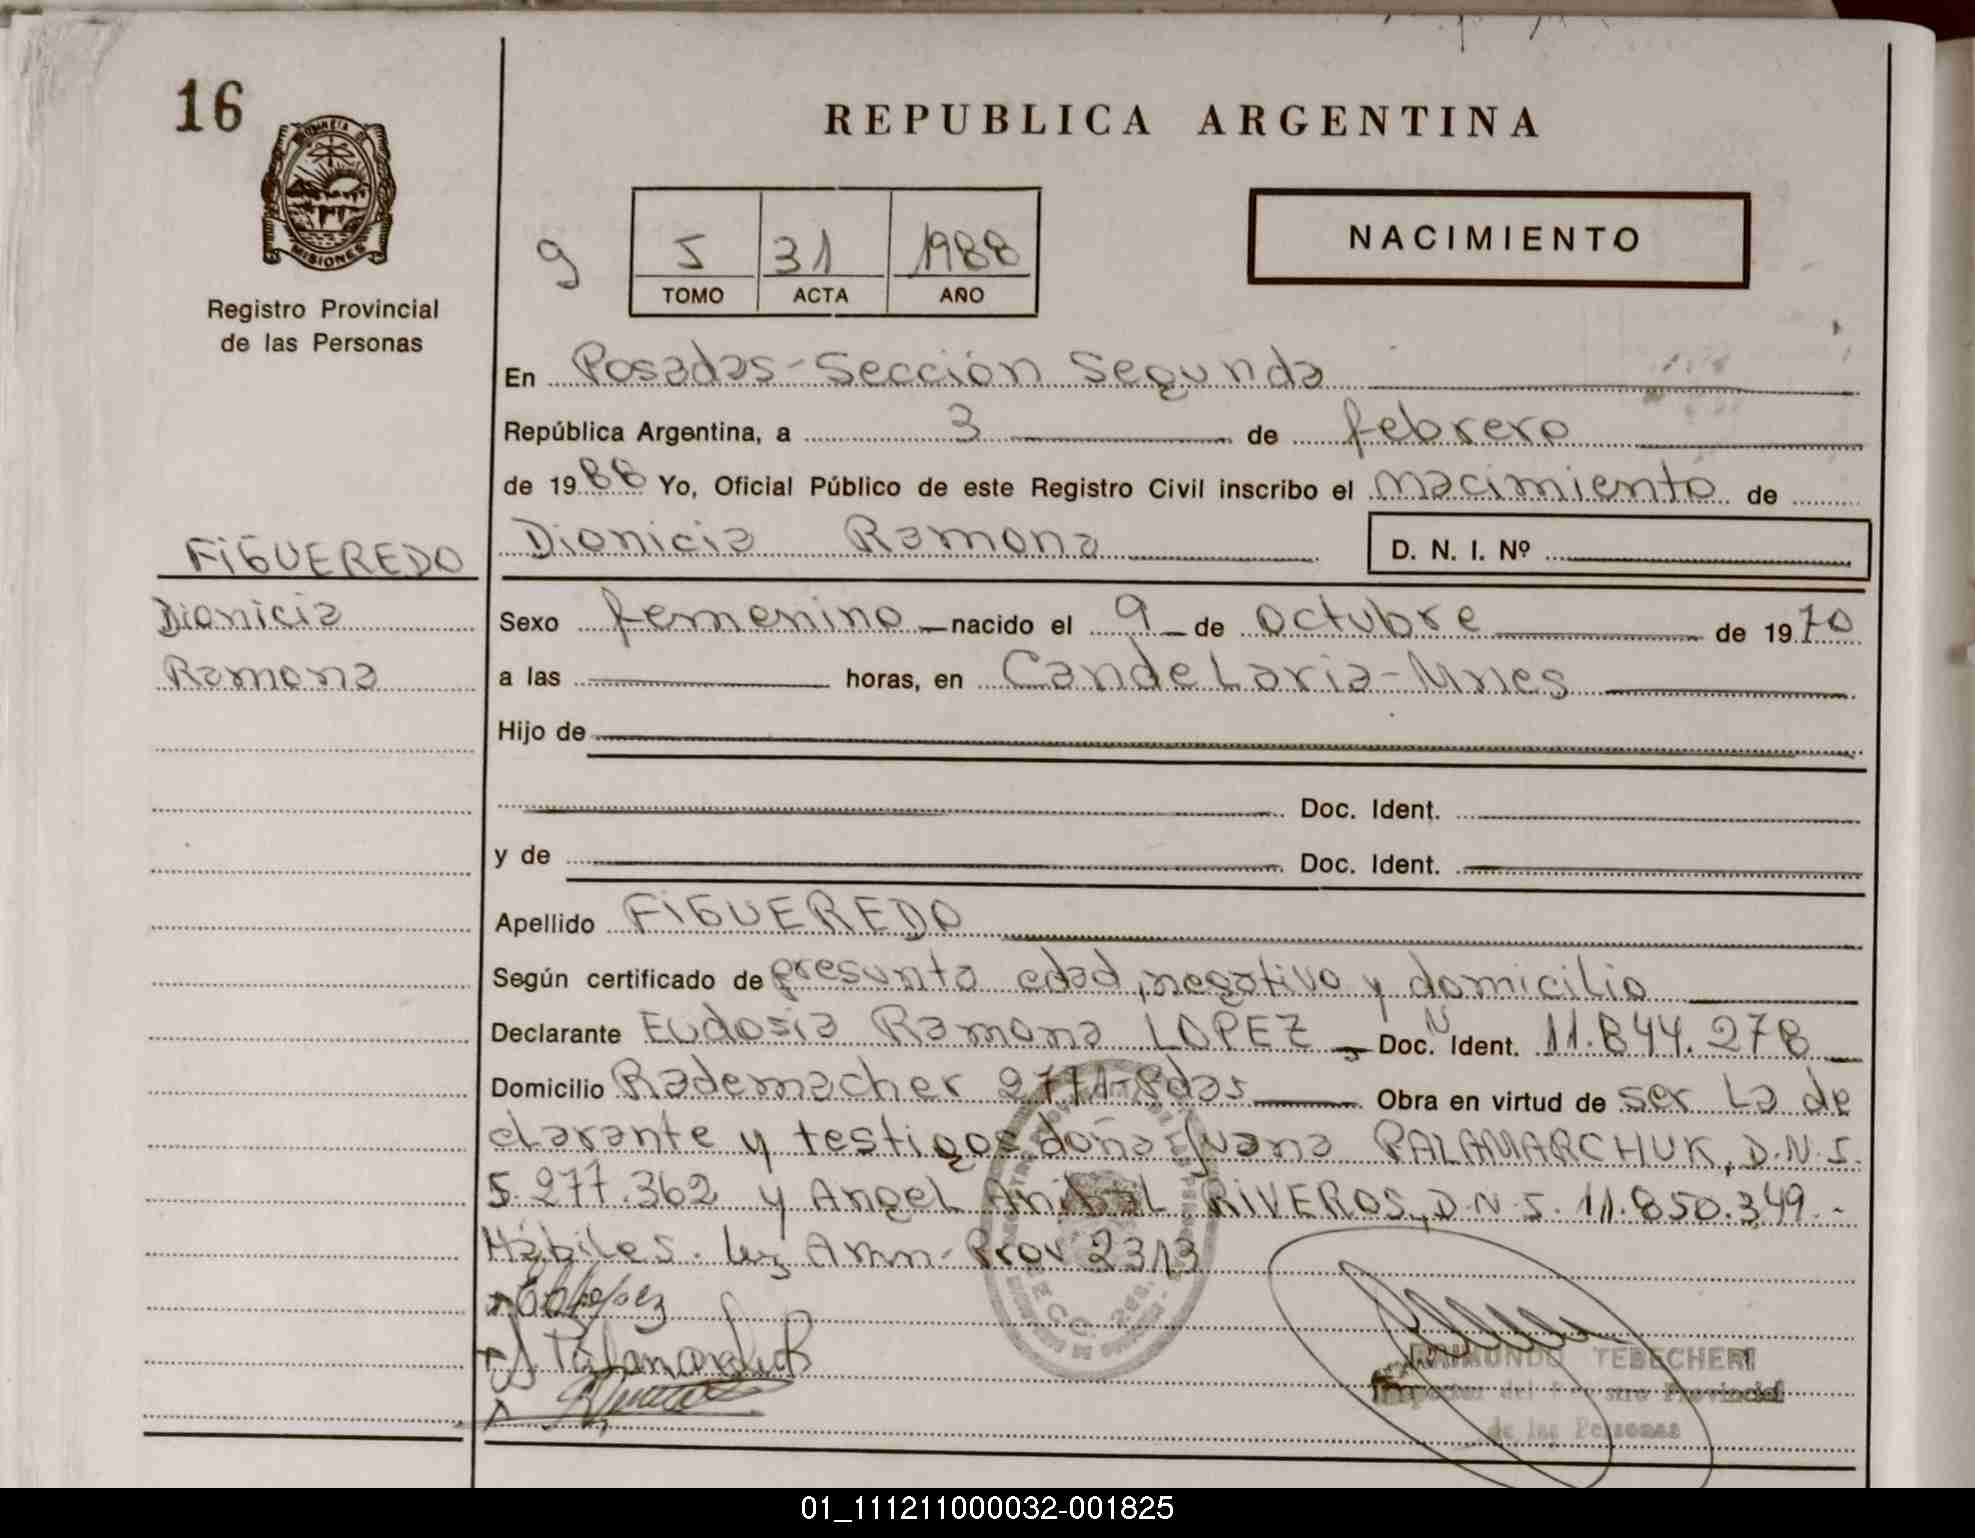 16
PROVINCIA DE
MISIONES
Registro Provincial
de las Personas
REPUBLICA ARGENTINA
9
5 31 1988
TOMO ACTA AÑO
NACIMIENTO
En Posadas-Sección Segunda
República Argentina, a 3 de febrero
de 1988 Yo, Oficial Público de este Registro Civil inscribo el nacimiento de
FIGUEREDO Dionicia Ramona D. N. I. Nº
Dionicia Sexo femenino nacido el 9 de octubre de 1970
Ramona a las horas, en Candelaria-Mnes
Hijo de
Doc. Ident.
y de Doc. Ident.
Apellido FIGUEREDO
Según certificado de presunta edad, negativo y domicilio
Declarante Eudosia Ramona LOPEZ, Doc. Ident. 11.844.278
Domicilio Rademacher 2771-Pdas Obra en virtud de ser la de
clarante y testigos doña Juana PALAMARCHUK, D.N.I.
5.277.362 y Angel Anibal RIVEROS, D.N.I. 11.850.349.-
Hábiles. Ley Amn-Prov 2313
RAIMUNDO TEBECHERI
Inspector del Registro Provincial
de las Personas
01_111211000032-001825